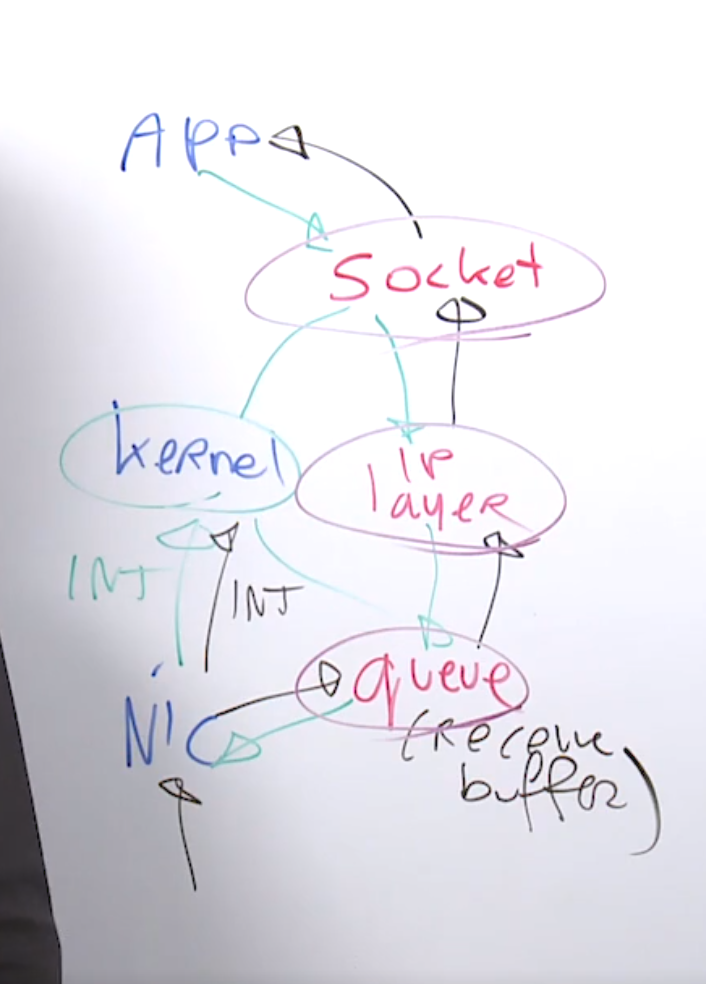 App
Socket
kernel
IP
layer
INT
INT
NIC
queue
(Receive
buffer)